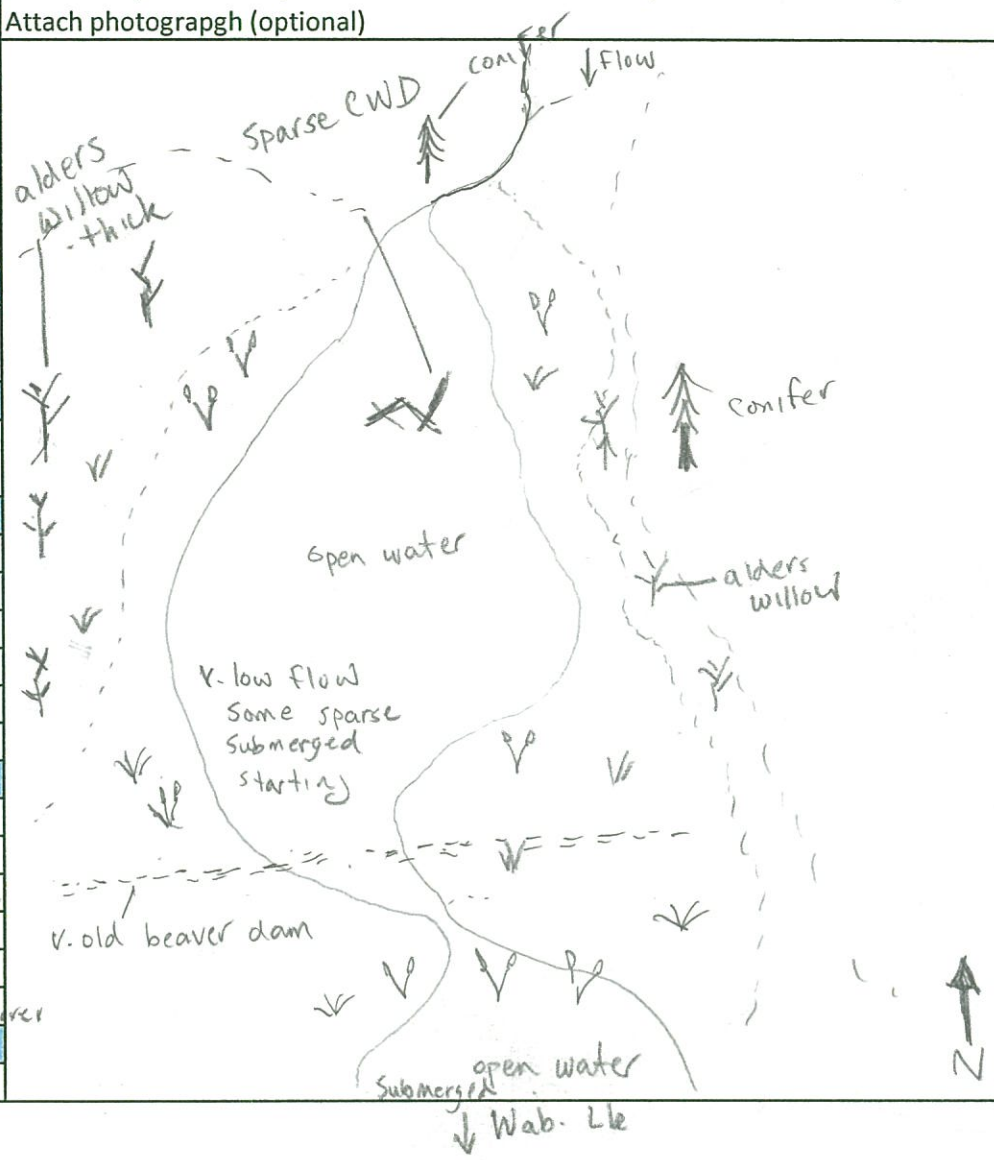 Attach photograpgh (optional)
conifer
↓ Flow
Sparse CWD
alders
willow
- thick
conifer
open water
alders
willow
v. low flow
Some sparse
Submerged
starting
v. old beaver dam
ver
N
open water
Submerged
↓ Wab. Lke